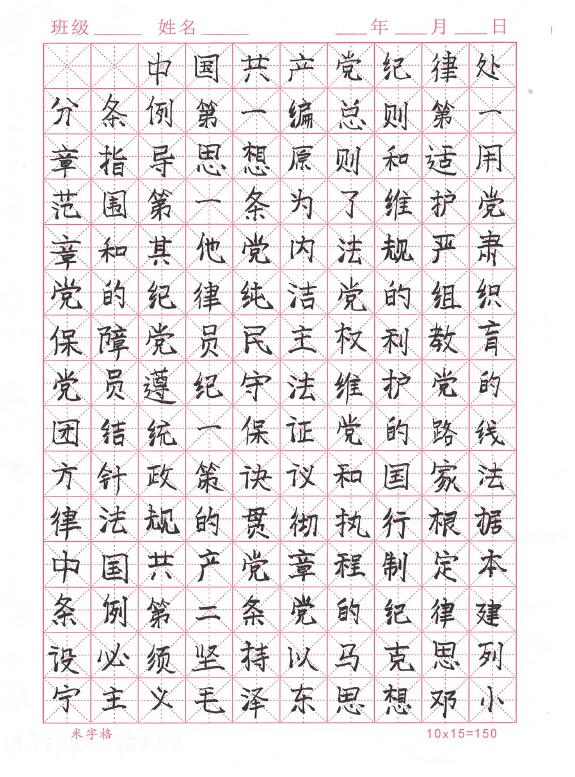 班级 姓名 年 月 日
中国共产党纪律处
分条例第一编总则第一
章指导思想原则和适用
范围第一条为了维护党
章和其他党内法规严肃
党的纪律纯洁党的组织
保障党员民主权利教育
党员遵纪守法维护党的
团结统一保证党的路线
方针政策诀议和国家法
律法规的贯彻执行根据
中国共产党章程制定本
条例第二条党的纪律建
设必须坚持以马克思列
宁主义毛泽东思想邓小
米字格 10x15=150